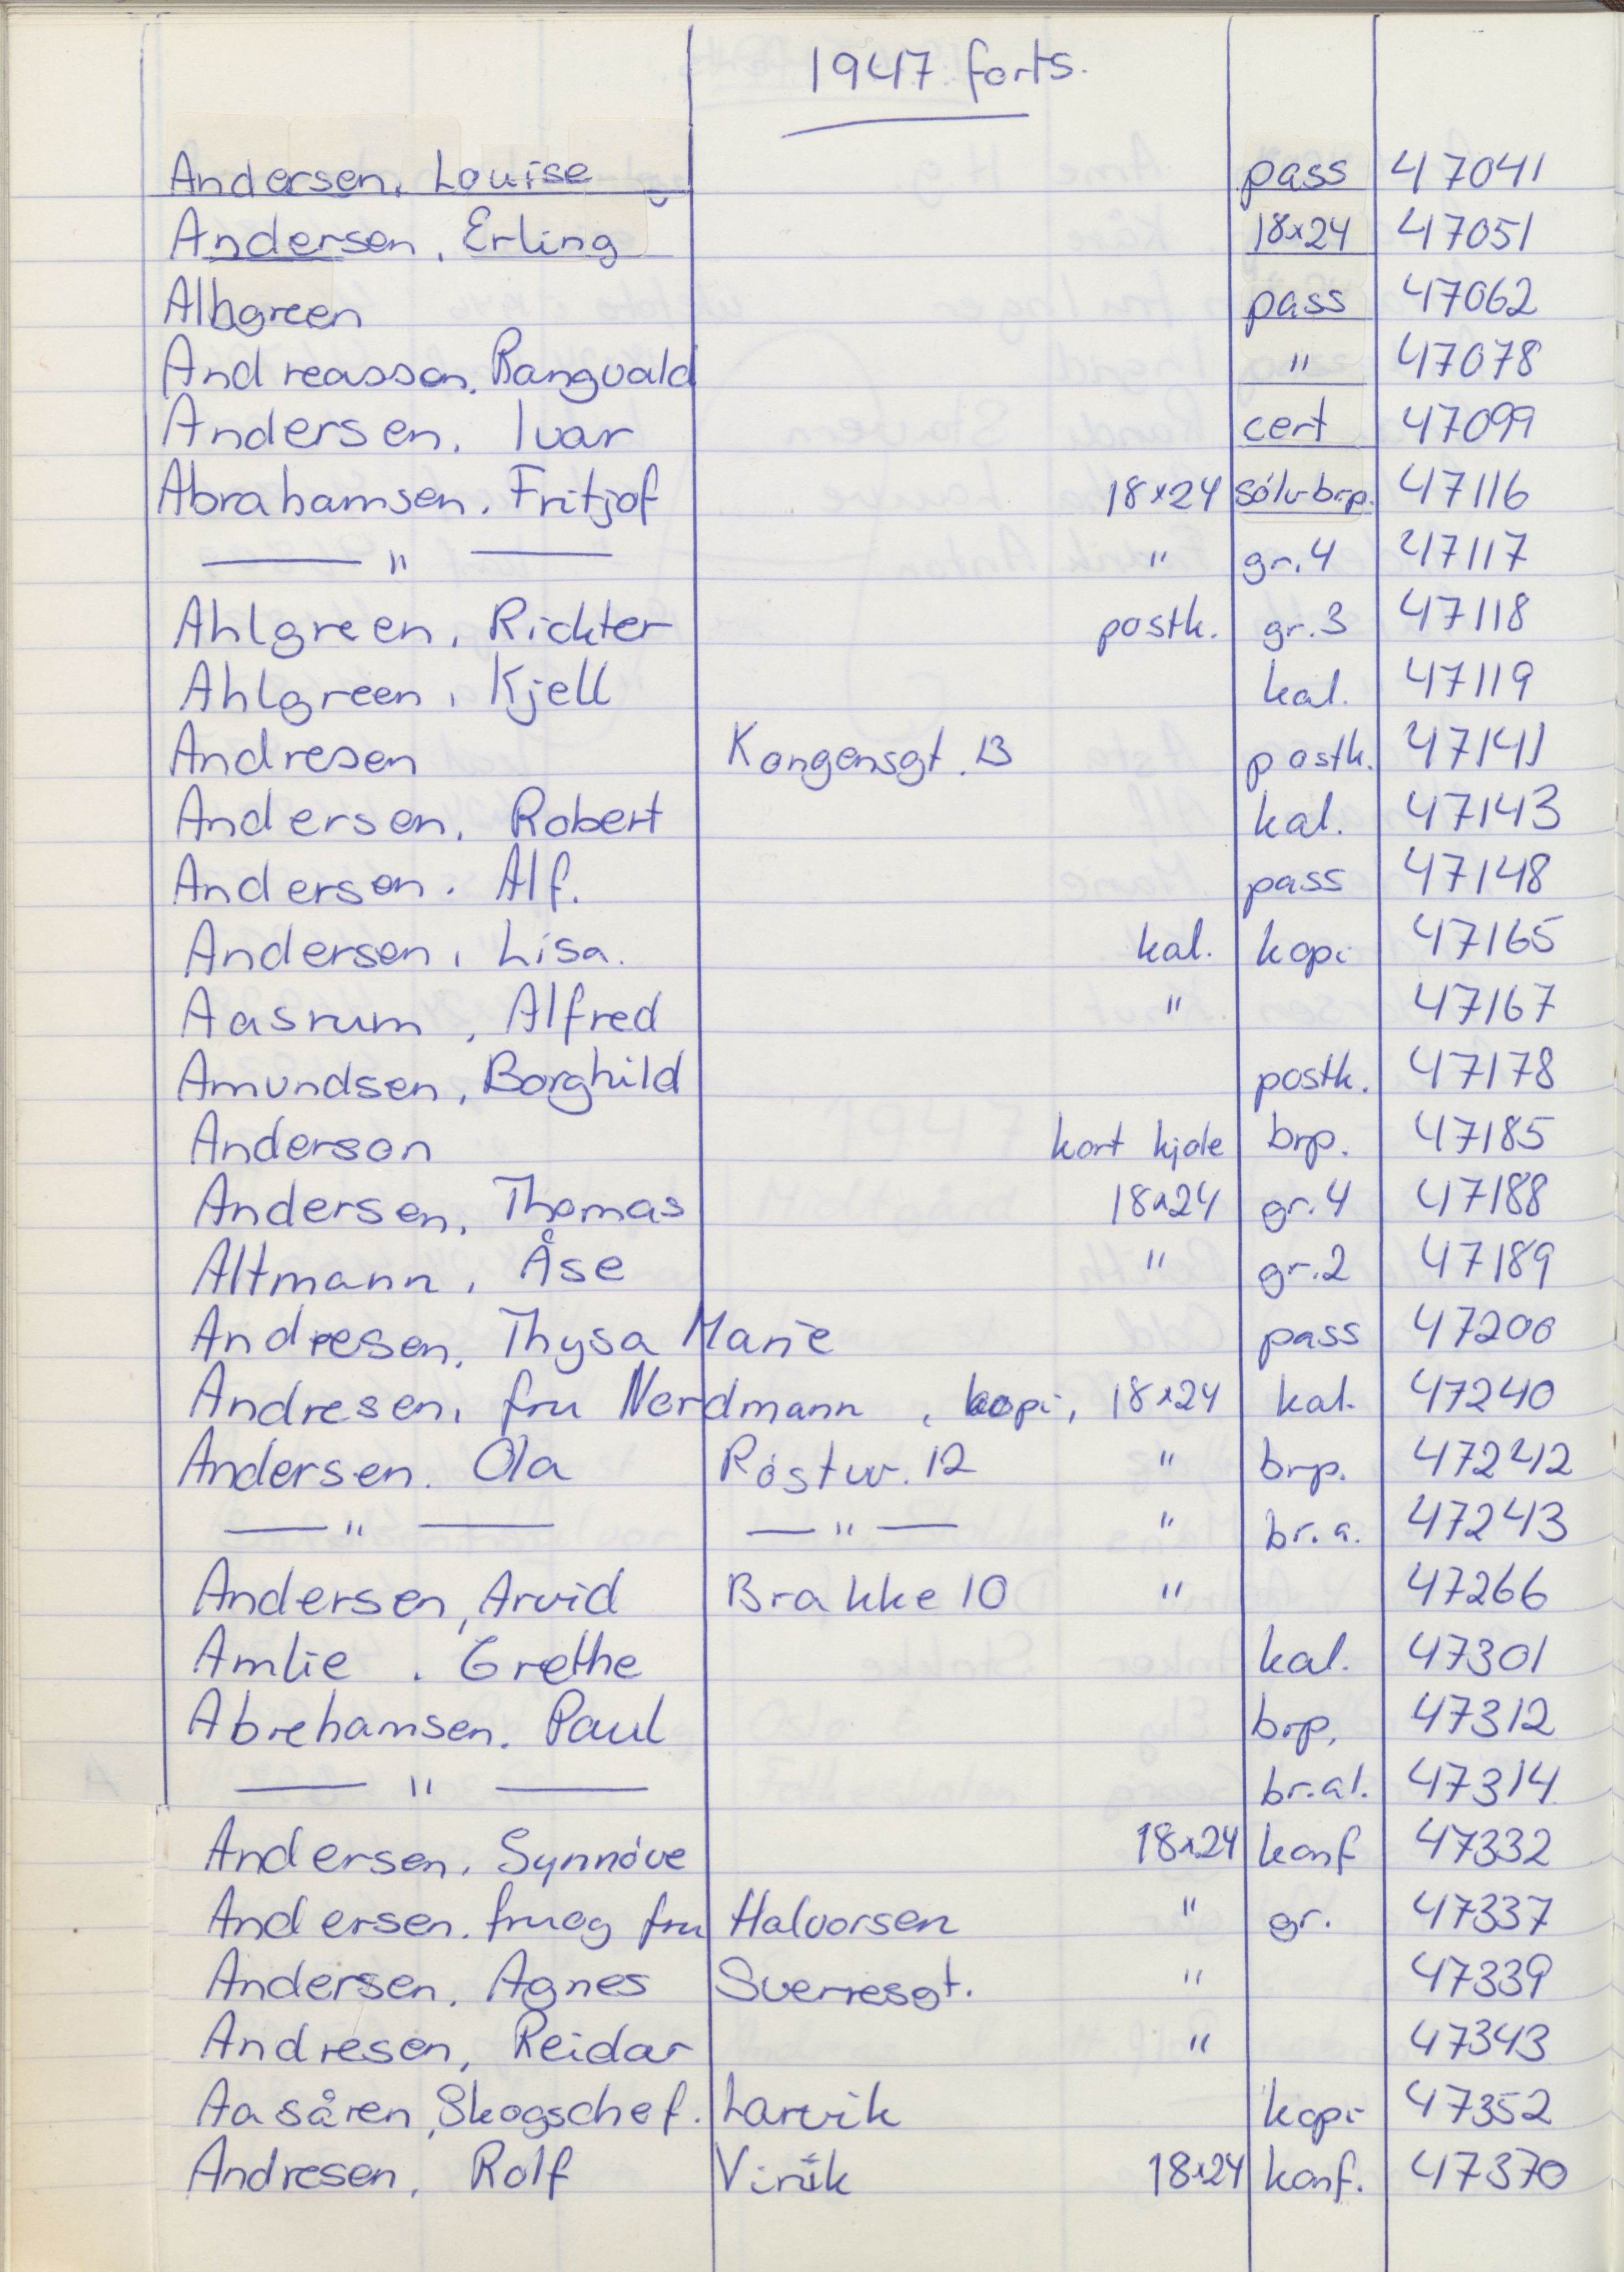 1947 forts.
Andersen, Louise pass 47041
Andersen, Erling 18x24 47051
Albgreen pass 47062
Andreassen, Rangvald " 47078
Andersen, Ivar cert 47099
Abrahamsen, Fritjof 18x24 sölv brp. 47116
— " — " gr. 4 47117
Ahlgreen, Rickter postk. gr. 3 47118
Ahlgreen, Kjell kal. 47119
Andresen Kongensgt. 13 postk. 47141
Andersen, Robert kal. 47143
Andersen. Alf. pass 47148
Andersen, Lisa. kal. kopi 47165
Aasrum, Alfred " 47167
Amundsen, Borghild postk. 47178
Anderson kort kjole brp. 47185
Andersen, Thomas 18x24 gr. 4 47188
Altmann, Åse " gr. 2 47189
Andresen, Thysa Marie pass 47200
Andresen, fru Nordmann, kopi, 18x24 kal. 47240
Andersen. Ola Röstvv. 12 " brp. 47242
— " — — " — " br. a. 47243
Andersen, Arvid Brakke 10 " 47266
Amlie. Grethe kal. 47301
Abrehamsen. Paul brp. 47312
— " — br. al. 47314
Andersen, Synnöve 18x24 konf 47332
Andersen. fru og fru Halvorsen " gr. 47337
Andersen, Agnes Sverresgt. " 47339
Andresen, Reidar " 47343
Aasåren, Skogschef. Larvik kopi 47352
Andresen, Rolf 18x24 konf. 47370